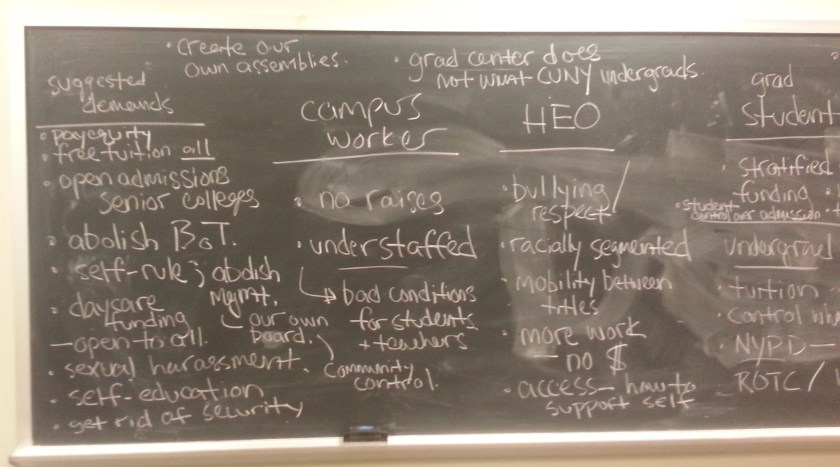 • create our
own assemblies.
• grad center does
not what CUNY undergrads.
suggested
demands
• pay equity
• free tuition all
• open admissions
senior colleges
• abolish B.o.T.
• self-rule; abolish
Mgmt.
our own
board.
• daycare
funding
— open to all.
• sexual harassment.
• self-education
• get rid of security
campus
worker
• no raises
• understaffed
↳ bad conditions
for students
+ teachers
community
control.
HEO
• bullying/
respect
• racially segmented
• mobility between
titles
• more work
— no $
• access — how to
support self
grad
student
• stratified
funding
• student
control over admission
undergrad
• tuition
• control
• NYPD —
• ROTC /